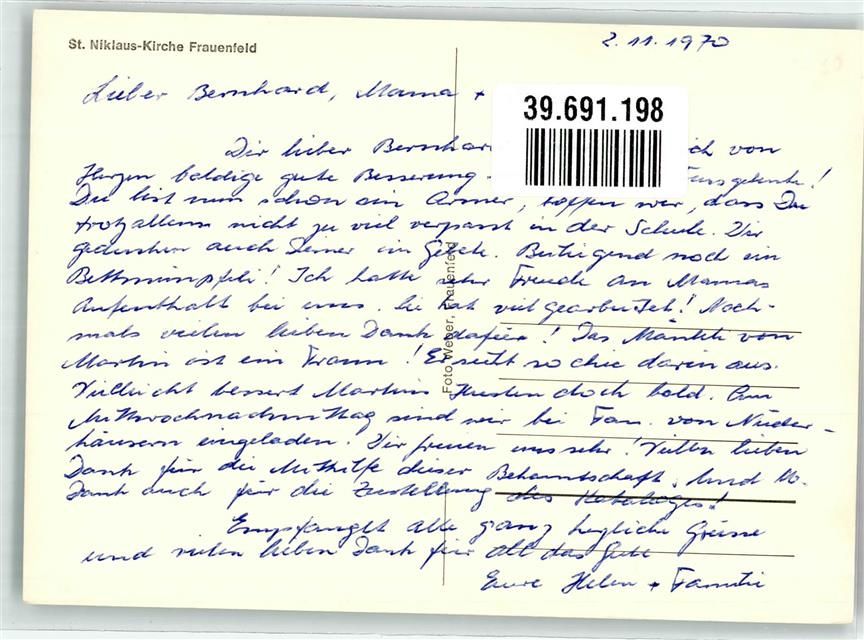 St. Niklaus-Kirche Frauenfeld
2.11.1970
Lieber Bernhard, Mama +
39.691.198
Dir lieber Bernhar ich von
Herzen baldige gute Besserung
Du bist nun schon ein Armer, hoffen wir, dass Du
trotzallem nicht zu viel verpasst in der Schule. Wir
gedenken auch Deiner im Gebete. Beiliegend noch ein
Bettmümpfeli! Ich hatte sehr Freude an Mamas
Aufenthalt bei uns. Sie hat viel gearbeitet! Noch-
mals vielen lieben Dank dafür! Das Mänteli von
Martin ist ein Traum! Er sieht so chic darin aus.
Vielleicht bessert Martins Husten doch bald. Am
Mittwochnachmittag sind wir bei Fam. von Nieder-
häusern eingeladen. Wir freuen uns sehr! Vielen lieben
Dank für die Mithilfe dieser Bekanntschaft. Und
Dank auch für die Zustellung des Kataloges!
Empfanget alle ganz herzliche Grüsse
und vielen lieben Dank für all das Gute
Eure Helen + Familie
Foto Weber, Frauenfeld